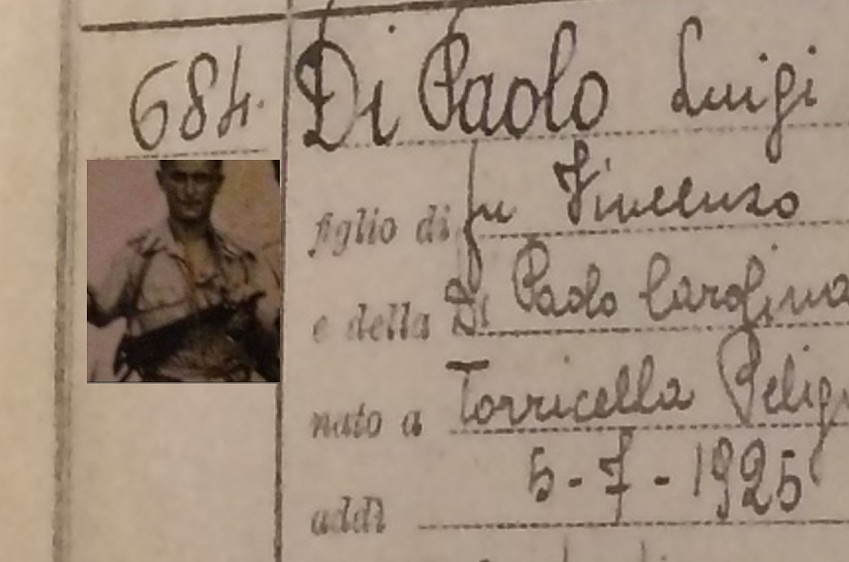 684. Di Paolo Luigi
figlio di fu Vincenzo
e della Di Paolo Carolina
nato a Torricella Pelig
addì 5-7-1925